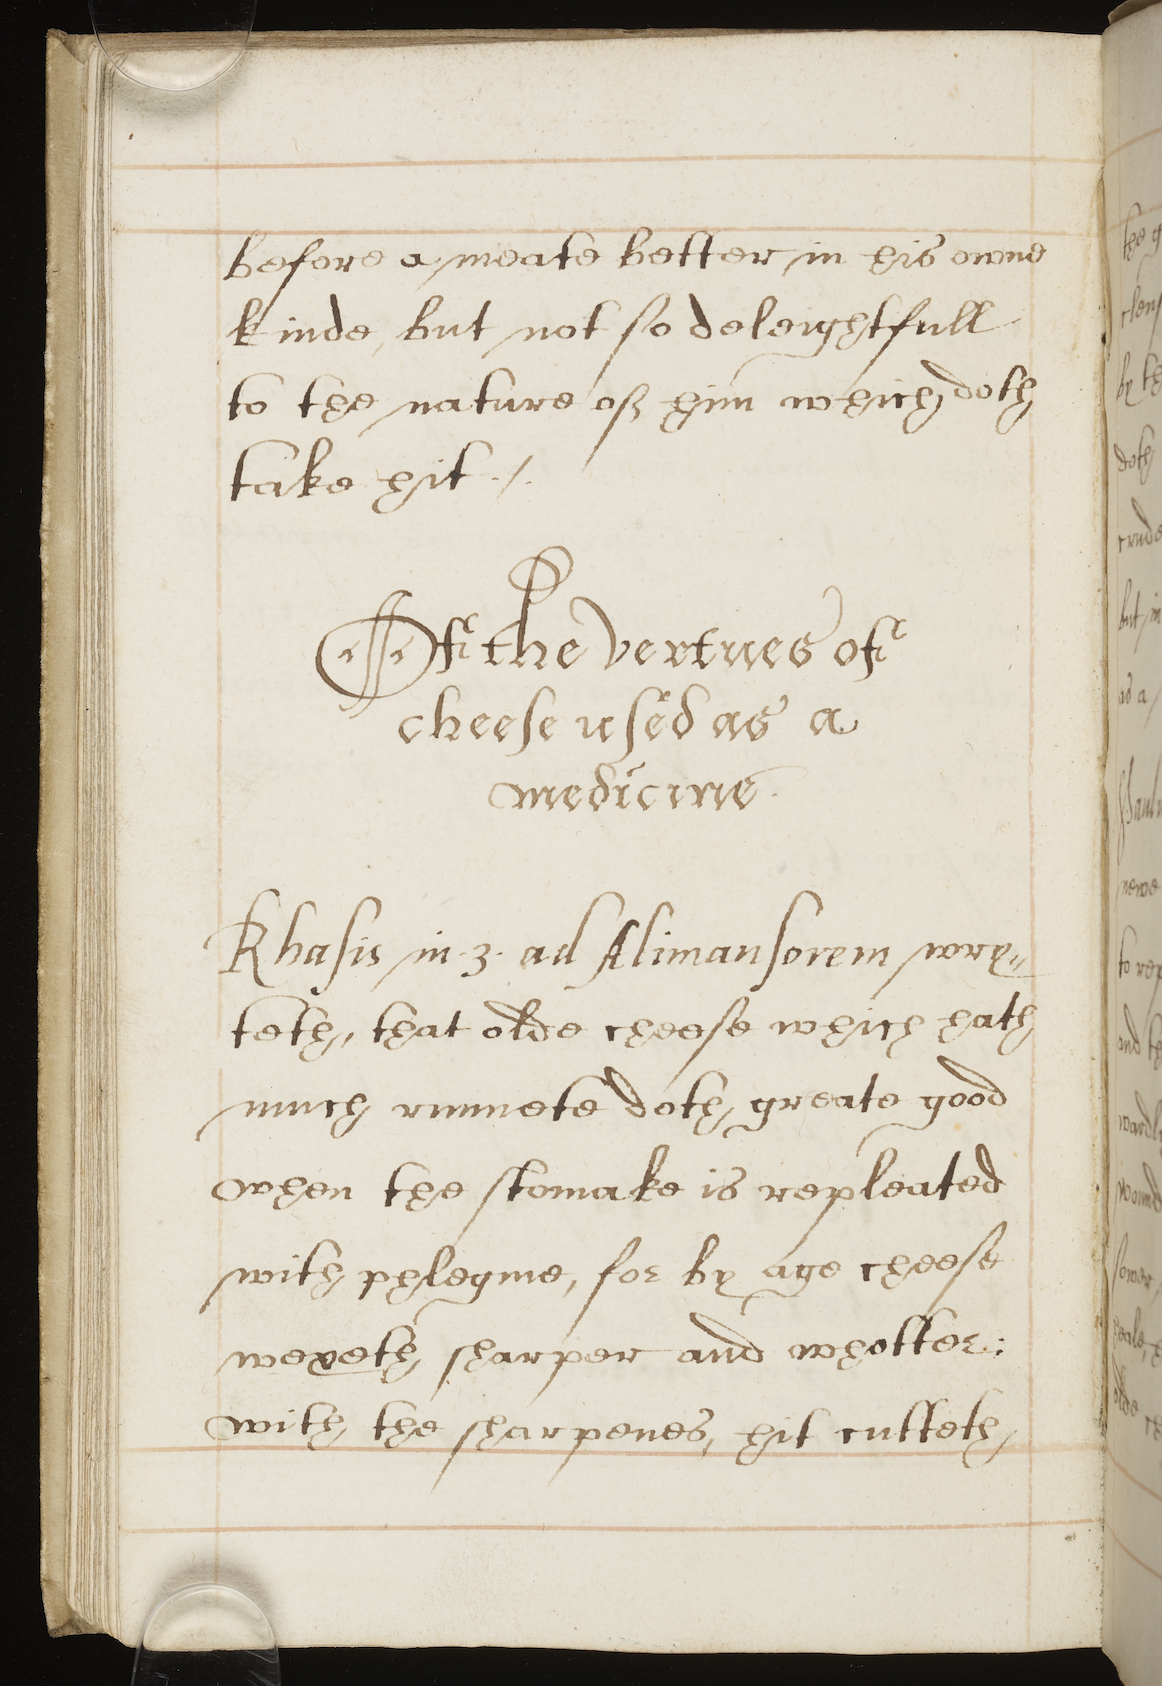 before a meate better in his owne
kinde, but not so deleightfull
to the nature of him which doth
take hit ./.
Of the vertues of
cheese used as a
medicine.
Rhasis in .3. ad Alimansorem wry„
teth, that olde cheese which hath
much runnete doth greate good
when the stomake is repleated
with phlegme, for by age cheese
wexeth sharper and whotter:
with the sharpenes, hit cutteth
the
by
doth
crude
but in
as a
newe
to rep
and th